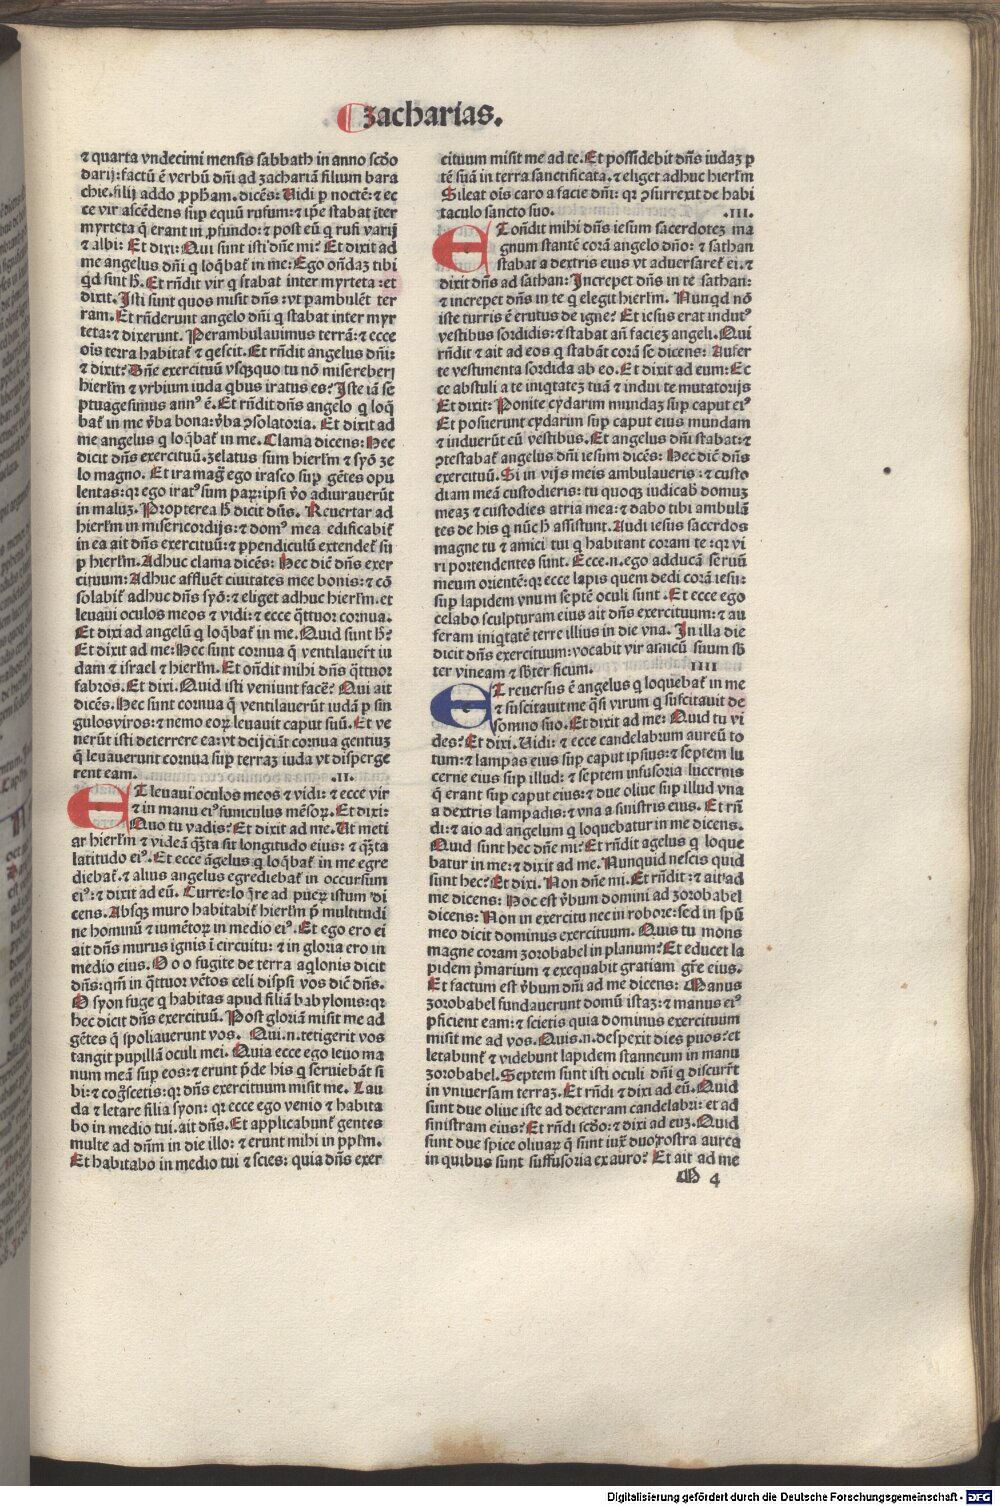 zacharias.
⁊ quarta vndecimi mensis sabbath in anno scd̄o
darij: factū ē verbū dn̄i ad zachariā filium bara
chie. filij addo ꝓpham. dicēs: Uidi ꝑ noctē: ⁊ ec
ce vir ascēdens suꝑ equū rufum: ⁊ ip̄e stabat iter
myrteta q̄ erant in ꝓfundo: ⁊ post eū q̨ rufi varij
⁊ albi: Et dixi: Qui sunt isti dn̄e mi? Et dixit ad
me angelus dn̄i q̨ loq̄bat̄ in me: Ego on̄daꝫ tibi
q̨d sint h̄. Et rn̄dit vir q̨ stabat inter myrteta: et
dixit. Isti sunt quos misit dn̄s: vt pambulēt ter
ram. Et rn̄derunt angelo dn̄i q̨ stabat inter myr
teta: ⁊ dixerunt. Perambulauimus terrā: ⁊ ecce
oīs terra habitat̄ ⁊ q̨escit. Et rn̄dit angelus dn̄i:
⁊ dixit? Dn̄e exercituū vsq̨ꝫquo tu nō misereberi
hierl̄m ⁊ vrbium iuda q̨bus iratus es? Iste iā se
ptuagesimus annꝰ ē. Et rn̄dit dn̄s angelo q̨ loq̄
bat̄ in me v̄ba bona: v̄ba ꝯsolatoria. Et dixit ad
me angelus q̨ loq̄bat̄ in me. Clama dicens: Hec
dicit dn̄s exercituū. zelatus sum hierl̄m ⁊ syō ze
lo magno. Et ira mag̃ ego irasco suꝑ gētes opu
lentas: qꝛ ego iratꝰ sum paꝝ: ipsi v̄o adiurauerūt
in maluꝫ. Propterea h̄ dicit dn̄s. Reuertar ad
hierl̄m in misericordijs: ⁊ domꝰ mea edificabit̄
in ea ait dn̄s exercituū: ⁊ ꝑpendiculū extendet̄ sū
ꝑ hierl̄m. Adhuc clama dicēs: Hec dic̄ dn̄s exer
cituum: Adhuc affluēt ciuitates mee bonis: ⁊ cō
solabit̄ adhuc dn̄s syō: ⁊ eliget adhuc hierl̄m. et
leuaui oculos meos ⁊ vidi: ⁊ ecce q̄ttuor cornua.
Et dixi ad angelū q̨ loq̄bat̄ in me. Quid sunt h̄?
Et dixit ad me: Hec sunt cornua q̄ ventilauer̄t iu
dam ⁊ israel ⁊ hierl̄m. Et on̄dit mihi dn̄s q̄ttuor
fabros. Et dixi. Quid isti veniunt facē? Qui ait
dicēs. Hec sunt cornua q̄ ventilauerūt iudā ꝑ sin
gulos viros: ⁊ nemo eoꝝ leuauit caput suū. Et ve
nerūt isti deterrere ea: vt deijciāt cornua gentiuꝫ
q̄ leuauerunt cornua suꝑ terraꝫ iuda vt disperge
rent eam. .II.
ET leuaui oculos meos ⁊ vidi: ⁊ ecce vir
⁊ in manu eiꝰ funiculus mēsoꝝ. Et dixi:
Quo tu vadis? Et dixit ad me. Ut meti
ar hierl̄m ⁊ videā q̄ꝫta sit longitudo eius: ⁊ q̄ꝫta
latitudo eiꝰ. Et ecce āgelus q̨ loq̄bat̄ in me egre
diebat̄. ⁊ alius angelus egrediebat̄ in occursum
eiꝰ: ⁊ dixit ad eū. Curre: lo q̄re ad pueꝝ istum di
cens. Absq̨ꝫ muro habitabit̄ hierl̄m p̄ multitudi
ne hominū ⁊ iumētoꝝ in medio eiꝰ. Et ego ero ei
ait dn̄s murus ignis ī circuitu: ⁊ in gloria ero in
medio eius. O o o fugite de terra aq̨lonis dicit
dn̄s: qm̄ in q̄ttuor vētos celi disp̄si vos dic̄ dn̄s.
O syon fuge q̨ habitas apud filiā babylonis: qꝛ
hec dicit dn̄s exercituū. Post gloriā misit me ad
gētes q̄ spoliauerunt vos. Qui .n. tetigerit vos
tangit pupillā oculi mei. Quia ecce ego leuo ma
num meā suꝑ eos: ⁊ erunt p̄de his q̨ seruiebāt si
bi: ⁊ cog̃scetis: qꝛ dn̄s exercituum misit me. Lau
da ⁊ letare filia syon: qꝛ ecce ego venio ⁊ habita
bo in medio tui. ait dn̄s. Et applicabunt̄ gentes
multe ad dn̄m in die illo: ⁊ erunt mihi in ppl̄m.
Et habitabo in medio tui ⁊ scies: quia dn̄s exer
cituum misit me ad te. Et possidebit dn̄s iudaꝫ ꝑ
tē suā in terra sanctificata. ⁊ eliget adhuc hierl̄m
Sileat oīs caro a facie dn̄i: qꝛ ꝯsurrexit de habi
taculo sancto suo. .III.
ET on̄dit mihi dn̄s iesum sacerdoteꝫ ma
gnum stantē corā angelo dn̄o: ⁊ sathan
stabat a dextris eius vt aduersaret̄ ei. ⁊
dixit dn̄s ad sathan: Increpet dn̄s in te sathan:
⁊ increpet dn̄s in te q̨ elegit hierl̄m. Nunq̨d nō
iste turris ē erutus de igne? Et iesus erat indutꝰ
vestibus sordidis: ⁊ stabat an̄ facieꝫ angeli. Qui
rn̄dit ⁊ ait ad eos q̨ stabāt corā se dicens: Aufer
te vestimenta sordida ab eo. Et dixit ad eum: Ec
ce abstuli a te iniq̨tateꝫ tuā ⁊ indui te mutatorijs
Et dixit: Ponite cydarim mundaꝫ suꝑ caput eiꝰ
Et posuerunt cydarim suꝑ caput eius mundam
⁊ induerūt cū vestibus. Et angelus dn̄i stabat: ⁊
ꝯtestabat̄ angelus dn̄i iesum dicēs: Hec dic̄ dn̄s
exercituū. Si in vijs meis ambulaueris: ⁊ custo
diam meā custodieris: tu quoq̨ꝫ iudicab̄ domuꝫ
meaꝫ ⁊ custodies atria mea: ⁊ dabo tibi ambulā
tes de his q̨ nūc h̄ assistunt. Audi iesus sacerdos
magne tu ⁊ amici tui q̨ habitant coram te: qꝛ vi
ri portendentes sunt. Ecce .n. ego adducā seruū
meum orientē: qꝛ ecce lapis quem dedi corā iesu:
suꝑ lapidem vnum septē oculi sunt. Et ecce ego
celabo sculpturam eius ait dn̄s exercituum: ⁊ au
feram iniq̨tatē terre illius in die vna. In illa die
dicit dn̄s exercituum: vocabit vir amicū suum sb̄
ter vineam ⁊ sb̄ter ficum. IIII
ET reuersus ē angelus q̨ loquebat̄ in me
⁊ suscitauit me q̄si virum q̨ suscitauit de
somno suo. Et dixit ad me: Quid tu vi
des? Et dixi. Uidi: ⁊ ecce candelabrum aureū to
tum: ⁊ lampas eius suꝑ caput ipsius: ⁊ septem lu
cerne eius suꝑ illud: ⁊ septem infusoria lucernis
q̄ erant suꝑ caput eius: ⁊ due oliue suꝑ illud vna
a dextris lampadis: ⁊ vna a sinistris eius. Et rn̄
di: ⁊ aio ad angelum q̨ loquebatur in me dicens.
Quid sunt hec dn̄e mi? Et rn̄dit āgelus q̨ loque
batur in me: ⁊ dixit ad me. Nunquid nescis quid
sunt hec? Et dixi. Non dn̄e mi. Et rn̄dit: ⁊ ait ad
me dicens: Hoc est v̄bum domini ad zorobabel
dicens: Non in exercitu nec in robore: sed in spū
meo dicit dominus exercituum. Quis tu mons
magne coram zorobabel in planum? Et educet la
pidem p̄marium ⁊ exequabit gratiam gr̄e eius.
Et factum est v̄bum dn̄i ad me dicens: Manus
zorobabel fundauerunt domū istaꝫ: ⁊ manus eiꝰ
ꝑficient eam: ⁊ scietis quia dominus exercituum
misit me ad vos. Quis .n. despexit dies puos? et
letabunt̄ ⁊ videbunt lapidem stanneum in manu
zorobabel. Septem sunt isti oculi dn̄i q̨ discurr̄t
in vniuersam terraꝫ. Et rn̄di ⁊ dixi ad eū. Quid
sunt due oliue iste ad dexteram candelabri: et ad
sinistram eius? Et rn̄di scd̄o: ⁊ dixi ad euꝫ. Quid
sunt due spice oliuaꝝ q̄ sunt iux̄ duo rostra aurea
in quibus sunt suffusoria ex auro? Et ait ad me
M 4
Digitalisierung gefördert durch die Deutsche Forschungsgemeinschaft - DFG